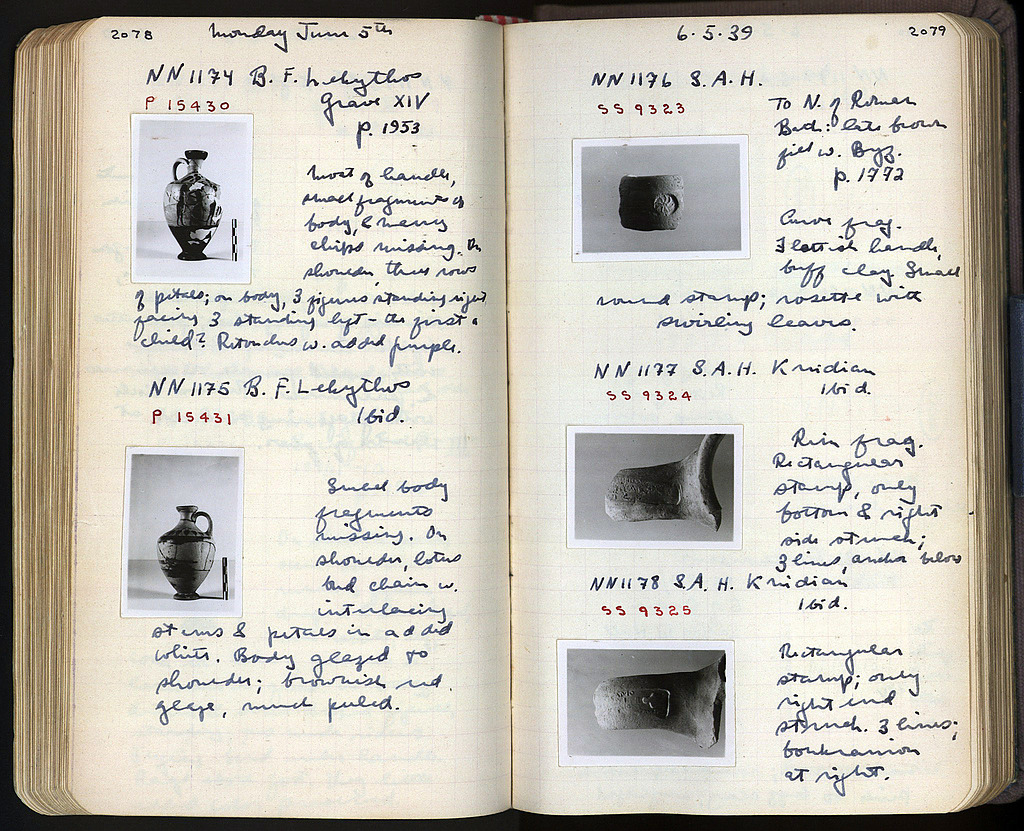 2078
Monday June 5th
NN 1174 B. F. Lekythos
P 15430
Grave XIV
p. 1953
Most of handle,
small fragments of
body, & many
chips missing. On
shoulder, three rows
of petals; on body, 3 figures standing right
facing 3 standing left - the first a
child? Retouches w. added purple.
NN 1175 B. F. Lekythos
P 15431
Ibid.
Small body
fragments
missing. On
shoulder, lotus
bud chain w.
interlacing
stems & petals in added
white. Body glazed to
shoulder; brownish red
glaze, much peeled.
6.5.39
2079
NN 1176 S. A. H.
SS 9323
To N. of Roman
Bath: late brown
fill w. Byz.
p. 1772
Curve frag.
flattish handle,
buff clay. Small
round stamp; rosette with
swirling leaves.
NN 1177 S. A. H. Knidian
SS 9324
Ibid.
Rim frag.
Rectangular
stamp, only
bottom & right
side struck;
3 lines, anchor below
NN 1178 S. A. H. Knidian
SS 9325
Ibid.
Rectangular
stamp; only
right end
struck. 3 lines;
boukranion
at right.